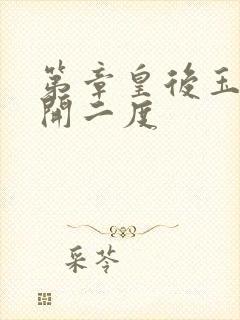 第章皇後玉
開二度
采苓